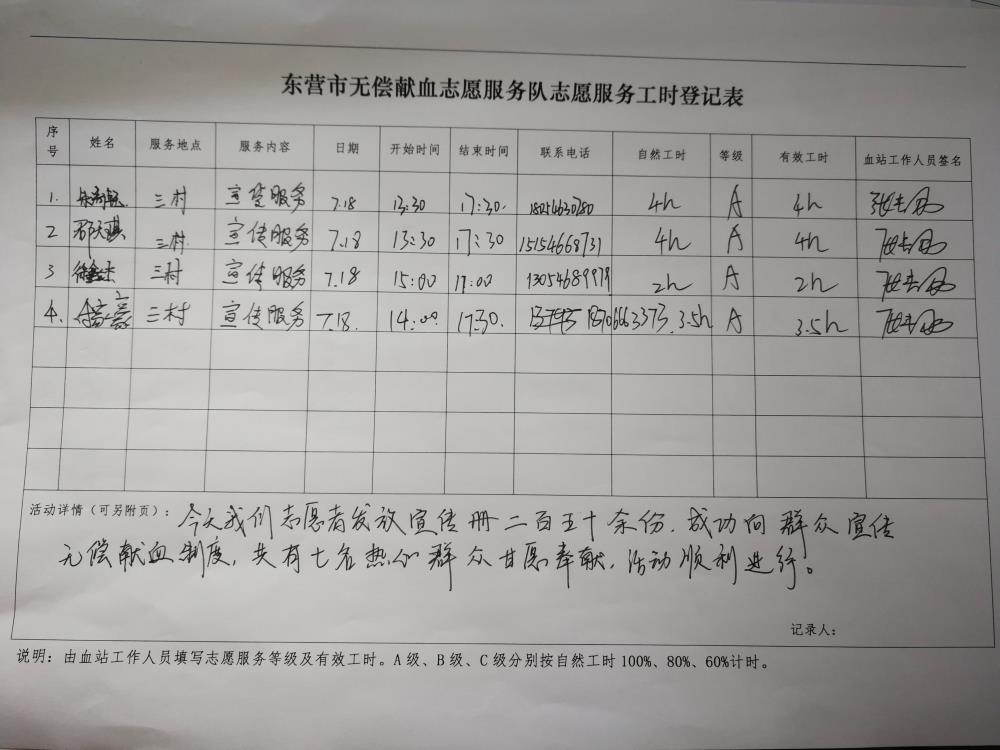 东营市无偿献血志愿服务队志愿服务工时登记表
序号 姓名 服务地点 服务内容 日期 开始时间 结束时间 联系电话 自然工时 等级 有效工时 血站工作人员签名
1. 三村 宣传服务 7.18 13:30 17:30. 18054630780 4h A 4h
2 三村. 宣传服务 7.18 13:30 17:30 15154668731 4h A 4h
3 三村 宣传服务 7.18 15:00 17:00 13054689979 2h A 2h
4. 三村 宣传服务 7.18. 14:00 17:30. 3.5h A 3.5h
活动详情（可另附页）：今天我们志愿者发放宣传册二百五十余份，成功向群众宣传
无偿献血制度，共有七名热心群众甘愿奉献，活动顺利进行。
记录人：
说明：由血站工作人员填写志愿服务等级及有效工时。A 级、B 级、C 级分别按自然工时 100%、80%、60%计时。